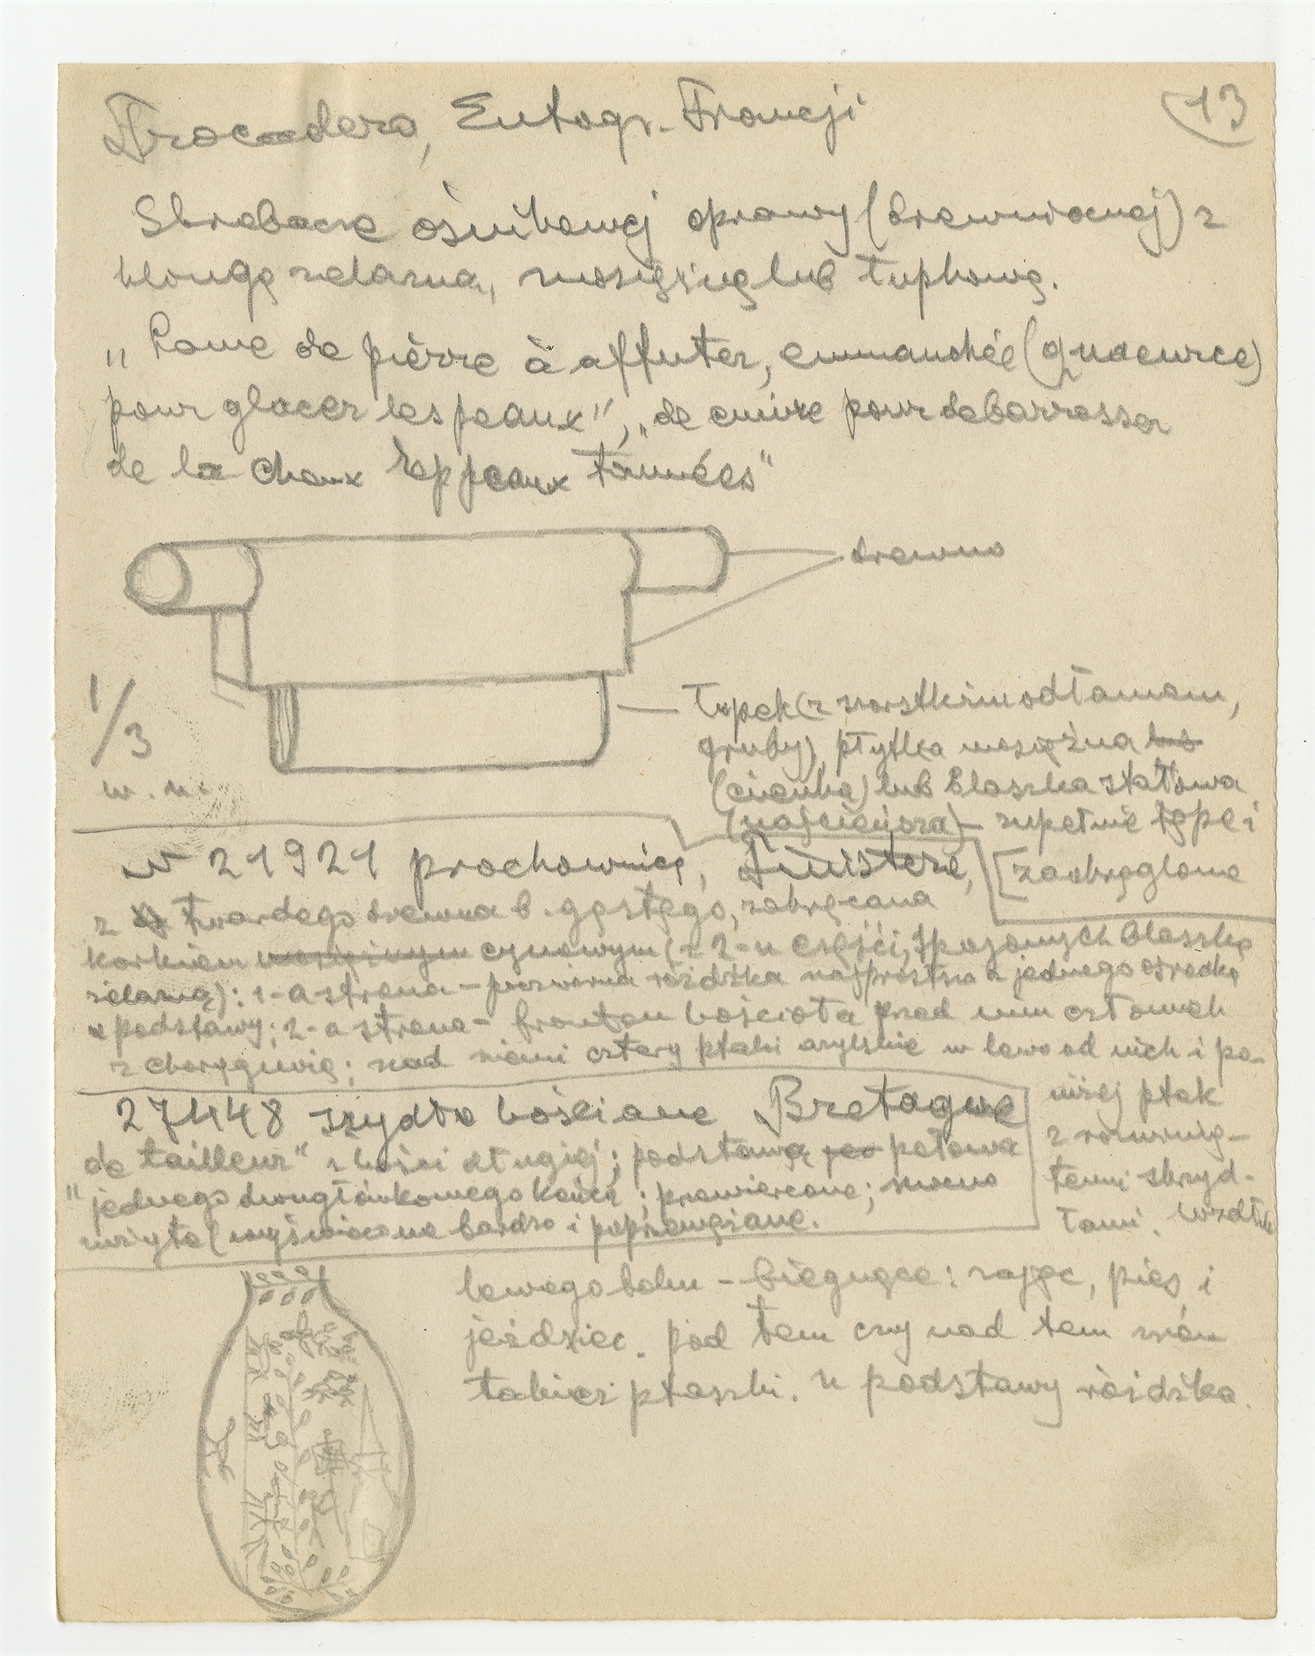 Trocadero, Entogr. Francji
13
Skrobacze ośnikowej oprawy (drewnianej) z
klingą żelazną, mosiężną lub łupkową.
„Lame de pièrre à affuter, emmanchée (queurce)
pour glacer les peaux", „de cuivre pour debarrasser
de la chaux les peaux tannées"
drewno
1/3
w. n.
łupek (z szorstkim odłamem,
gruby), płytka mosiężna lub
(cienka) lub blaszka stalowa
(najcieńsza) – zupełnie tępe i
[zaokrąglone
21921 prochownica, Finistere,
z twardego drewna b. gęstego, zakręcana
korkiem mosiężnym cynowym (z 2-u części, spojonych blaszką
żelazną): 1-a strona – pierwsza różdżka najprostsza z jednego ośrodka
u podstawy; 2-a strona – fronton kościoła przed nim człowiek
z chorągwią; nad niemi cztery ptaki w lewo od nich i po-
niżej ptak
z rozwinię-
temi skryd-
łami. Wzdłuż
27448 szydło kościane Bretagne
„de tailleur" z kości długiej; podstawą jes połowa
jednego dwugłówkowego końca; przewiercone; mocno
zużyte (wyświecone bardzo i
lewego boku – biegnące: zając, pies i
jeździec. pod tem czy nad tem znów
takież ptaszki. u podstawy różdżka.